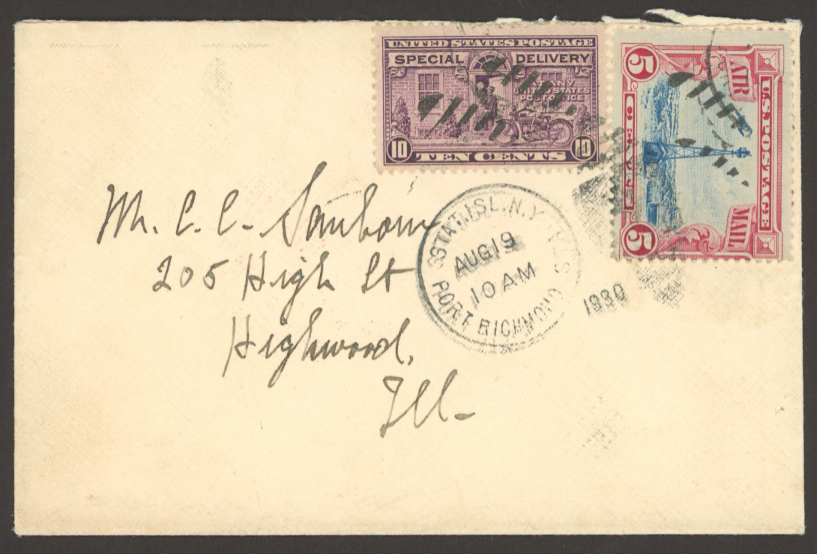 UNITED STATES POSTAGE
SPECIAL DELIVERY
AT ANY
UNITED STATES
POST OFFICE
10 TEN CENTS 10
5 CENTS 5
AIR MAIL
U.S. POSTAGE
STAT. ISL. N.Y.
AUG 19
10 AM
PORT RICHMOND
1930
Mr. C. C. Sanborn
205 High St
Highwood,
Ill-